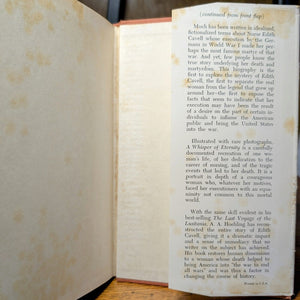 (continued from front flap)
Much has been written in idealized,
fictionalized terms about Nurse Edith
Cavell whose execution by the Ger-
mans in World War I made her per-
haps the most famous martyr of that
war. And yet, few people know the
true story underlying her death and
martyrdom. This biography is the
first to explore the mystery of Edith
Cavell, the first to separate the real
woman from the legend that grew up
around her—the first to expose the
facts that seem to indicate that her
execution may have been the result of
a desire on the part of certain in-
dividuals to inflame the American
public and bring the United States
into the war.
Illustrated with rare photographs,
A Whisper of Eternity is a carefully-
documented recreation of one wo-
man's life, of her dedication to the
career of nursing, and of the tragic
events that led to her death. It is a
portrait in depth of a courageous
woman who, whatever her motives,
faced her executioners with an equa-
nimity not common to this mortal
world.
With the same skill evident in his
best-selling The Last Voyage of the
Lusitania, A. A. Hoehling has recon-
structed the entire story of Edith
Cavell, giving it a dramatic impact
and a sense of immediacy that no
writer on the subject has achieved.
His book restores human dimension
to a woman whose death helped to
bring America into "the war to end
all wars" and was thus a factor in
changing the course of history.
Printed in U.S.A.